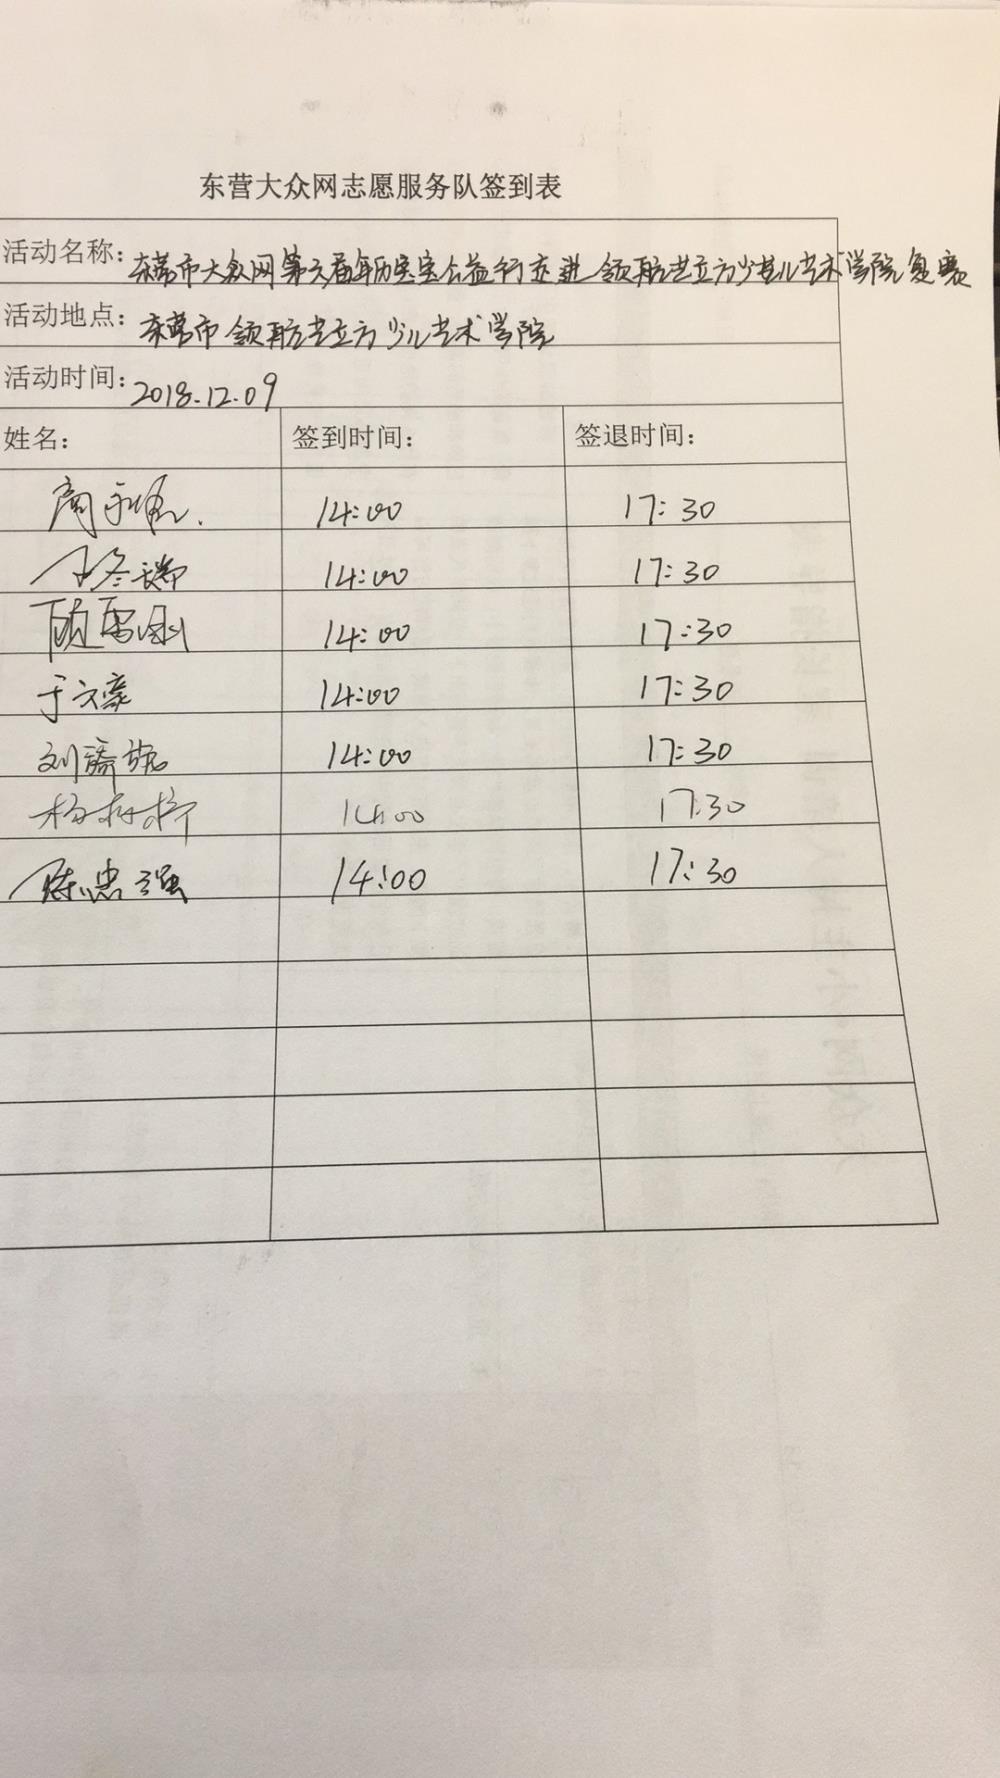 东营大众网志愿服务队签到表
活动名称: 东营市大众网第六届年历宝宝公益行走进领航艺立方少儿艺术学院复赛
活动地点: 东营市领航艺立方少儿艺术学院
活动时间: 2018.12.09
姓名: 签到时间: 签退时间:
14:00 17:30
14:00 17:30
14:00 17:30
于文豪 14:00 17:30
刘 14:00 17:30
杨 14:00 17:30
陈忠强 14:00 17:30